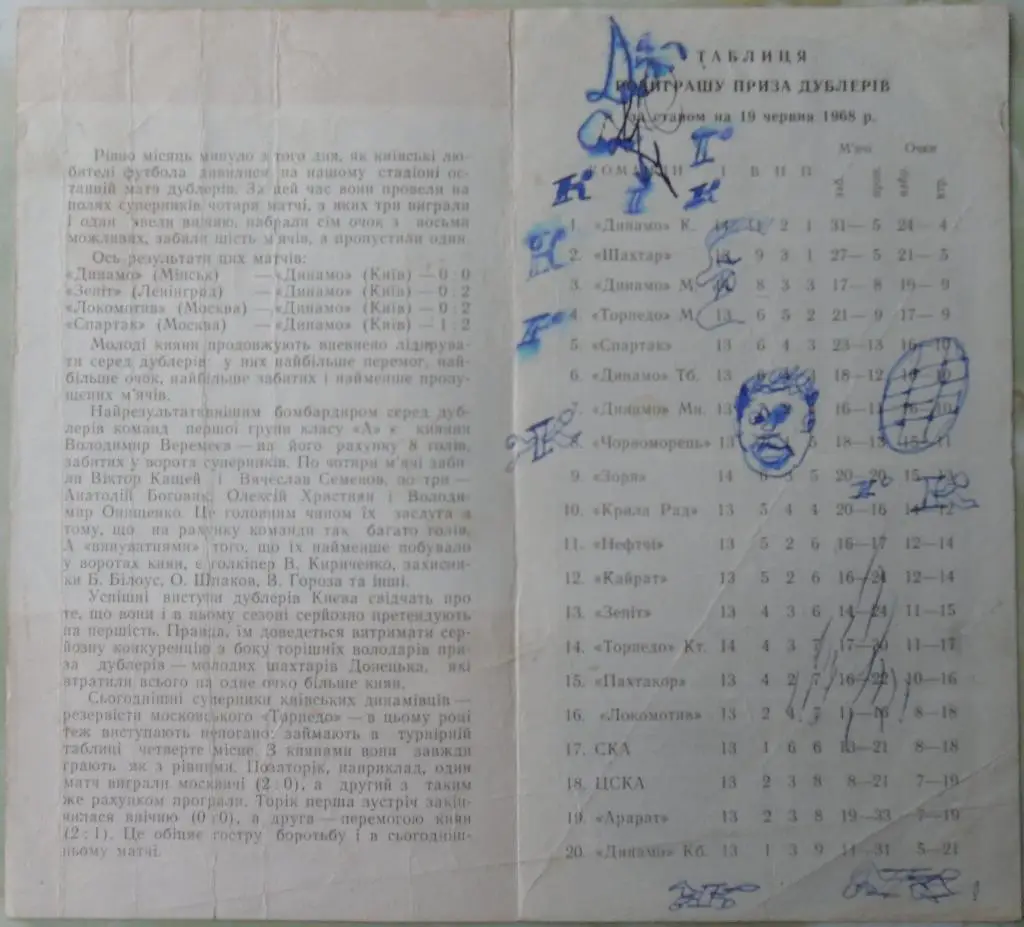 Рівно місяць минуло з того дня, як київські лю-
бителі футбола дивилися на нашому стадіоні ос-
танній матч дублерів. За цей час вони провели на
полях суперників чотири матчі, з яких три виграли
і один звели внічию, набрали сім очок з восьми
можливих, забили шість м'ячів, а пропустили один.
Ось результати цих матчів:
«Динамо» (Мінськ) — «Динамо» (Київ) — 0 : 0
«Зеніт» (Ленінград) — «Динамо» (Київ) — 0 : 2
«Локомотив» (Москва) — «Динамо» (Київ) — 0 : 2
«Спартак» (Москва) — «Динамо» (Київ) — 1 : 2
Молоді кияни продовжують впевнено лідирува-
ти серед дублерів: у них найбільше перемог, най-
більше очок, найбільше забитих і найменше пропу-
щених м'ячів.
Найрезультативнішим бомбардиром серед дуб-
лерів команд першої групи класу «А» є киянин
Володимир Веремеєв — на його рахунку 8 голів,
забитих у ворота суперників. По чотири м'ячі заби-
ли Віктор Кащей і Вячеслав Семенов, по три —
Анатолій Боговик, Олексій Християн і Володи-
мир Онищенко. Це головним чином їх заслуга в
тому, що на рахунку команди так багато голів.
А «винуватцями» того, що їх найменше побувало
у воротах киян, є голкіпер В. Кириченко, захисни-
ки Б. Білоус, О. Шпаков, В. Гороза та інші.
Успішні виступи дублерів Києва свідчать про
те, що вони і в цьому сезоні серйозно претендують
на першість. Правда, їм доведеться витримати сер-
йозну конкуренцію з боку торішніх володарів при-
за дублерів — молодих шахтарів Донецька, які
втратили всього на одне очко більше киян.
Сьогоднішні суперники київських динамівців —
резервісти московського «Торпедо» — в цьому році
теж виступають непогано: займають в турнірній
таблиці четверте місце. З киянами вони завжди
грають як з рівними. Позаторік, наприклад, один
матч виграли москвичі (2 : 0), а другий з таким
же рахунком програли. Торік перша зустріч закін-
чилася внічию (0 : 0), а друга — перемогою киян
(2 : 1). Це обіцяє гостру боротьбу і в сьогодніш-
ньому матчі.
ТАБЛИЦЯ
РОЗИГРАШУ ПРИЗА ДУБЛЕРІВ
за станом на 19 червня 1968 р.
М'ячі Очки
КОМАНДИ І В Н П заб. проп. набр. втр.
1. «Динамо» К. 14 11 2 1 31— 5 24— 4
2. «Шахтар» 13 9 3 1 27— 5 21— 5
3. «Динамо» М. 14 8 3 3 17— 8 19— 9
4. «Торпедо» М. 13 6 5 2 21— 9 17— 9
5. «Спартак» 13 6 4 3 23—13 16—10
6. «Динамо» Тб. 13 4 18—12
7. «Динамо» Мн. 13 16—10
8. «Чорноморець» 5 18—13 15—11
9. «Зоря» 14 6 3 5 20—20 15—13
10. «Крила Рад» 13 5 4 4 20—16 14—12
11. «Нефтчі» 13 5 2 6 16—17 12—14
12. «Кайрат» 13 5 2 6 16—21 12—14
13. «Зеніт» 13 4 3 6 14—24 11—15
14. «Торпедо» Кт. 14 4 3 7 17—20 11—17
15. «Пахтакор» 13 4 2 7 16—22 10—16
16. «Локомотив» 13 2 4 7 11—16 8—18
17. СКА 13 1 6 6 13—21 8—18
18. ЦСКА 13 2 3 8 8—21 7—19
19. «Арарат» 13 2 3 8 19—33 7—19
20. «Динамо» Кб. 13 1 3 9 11—31 5—21